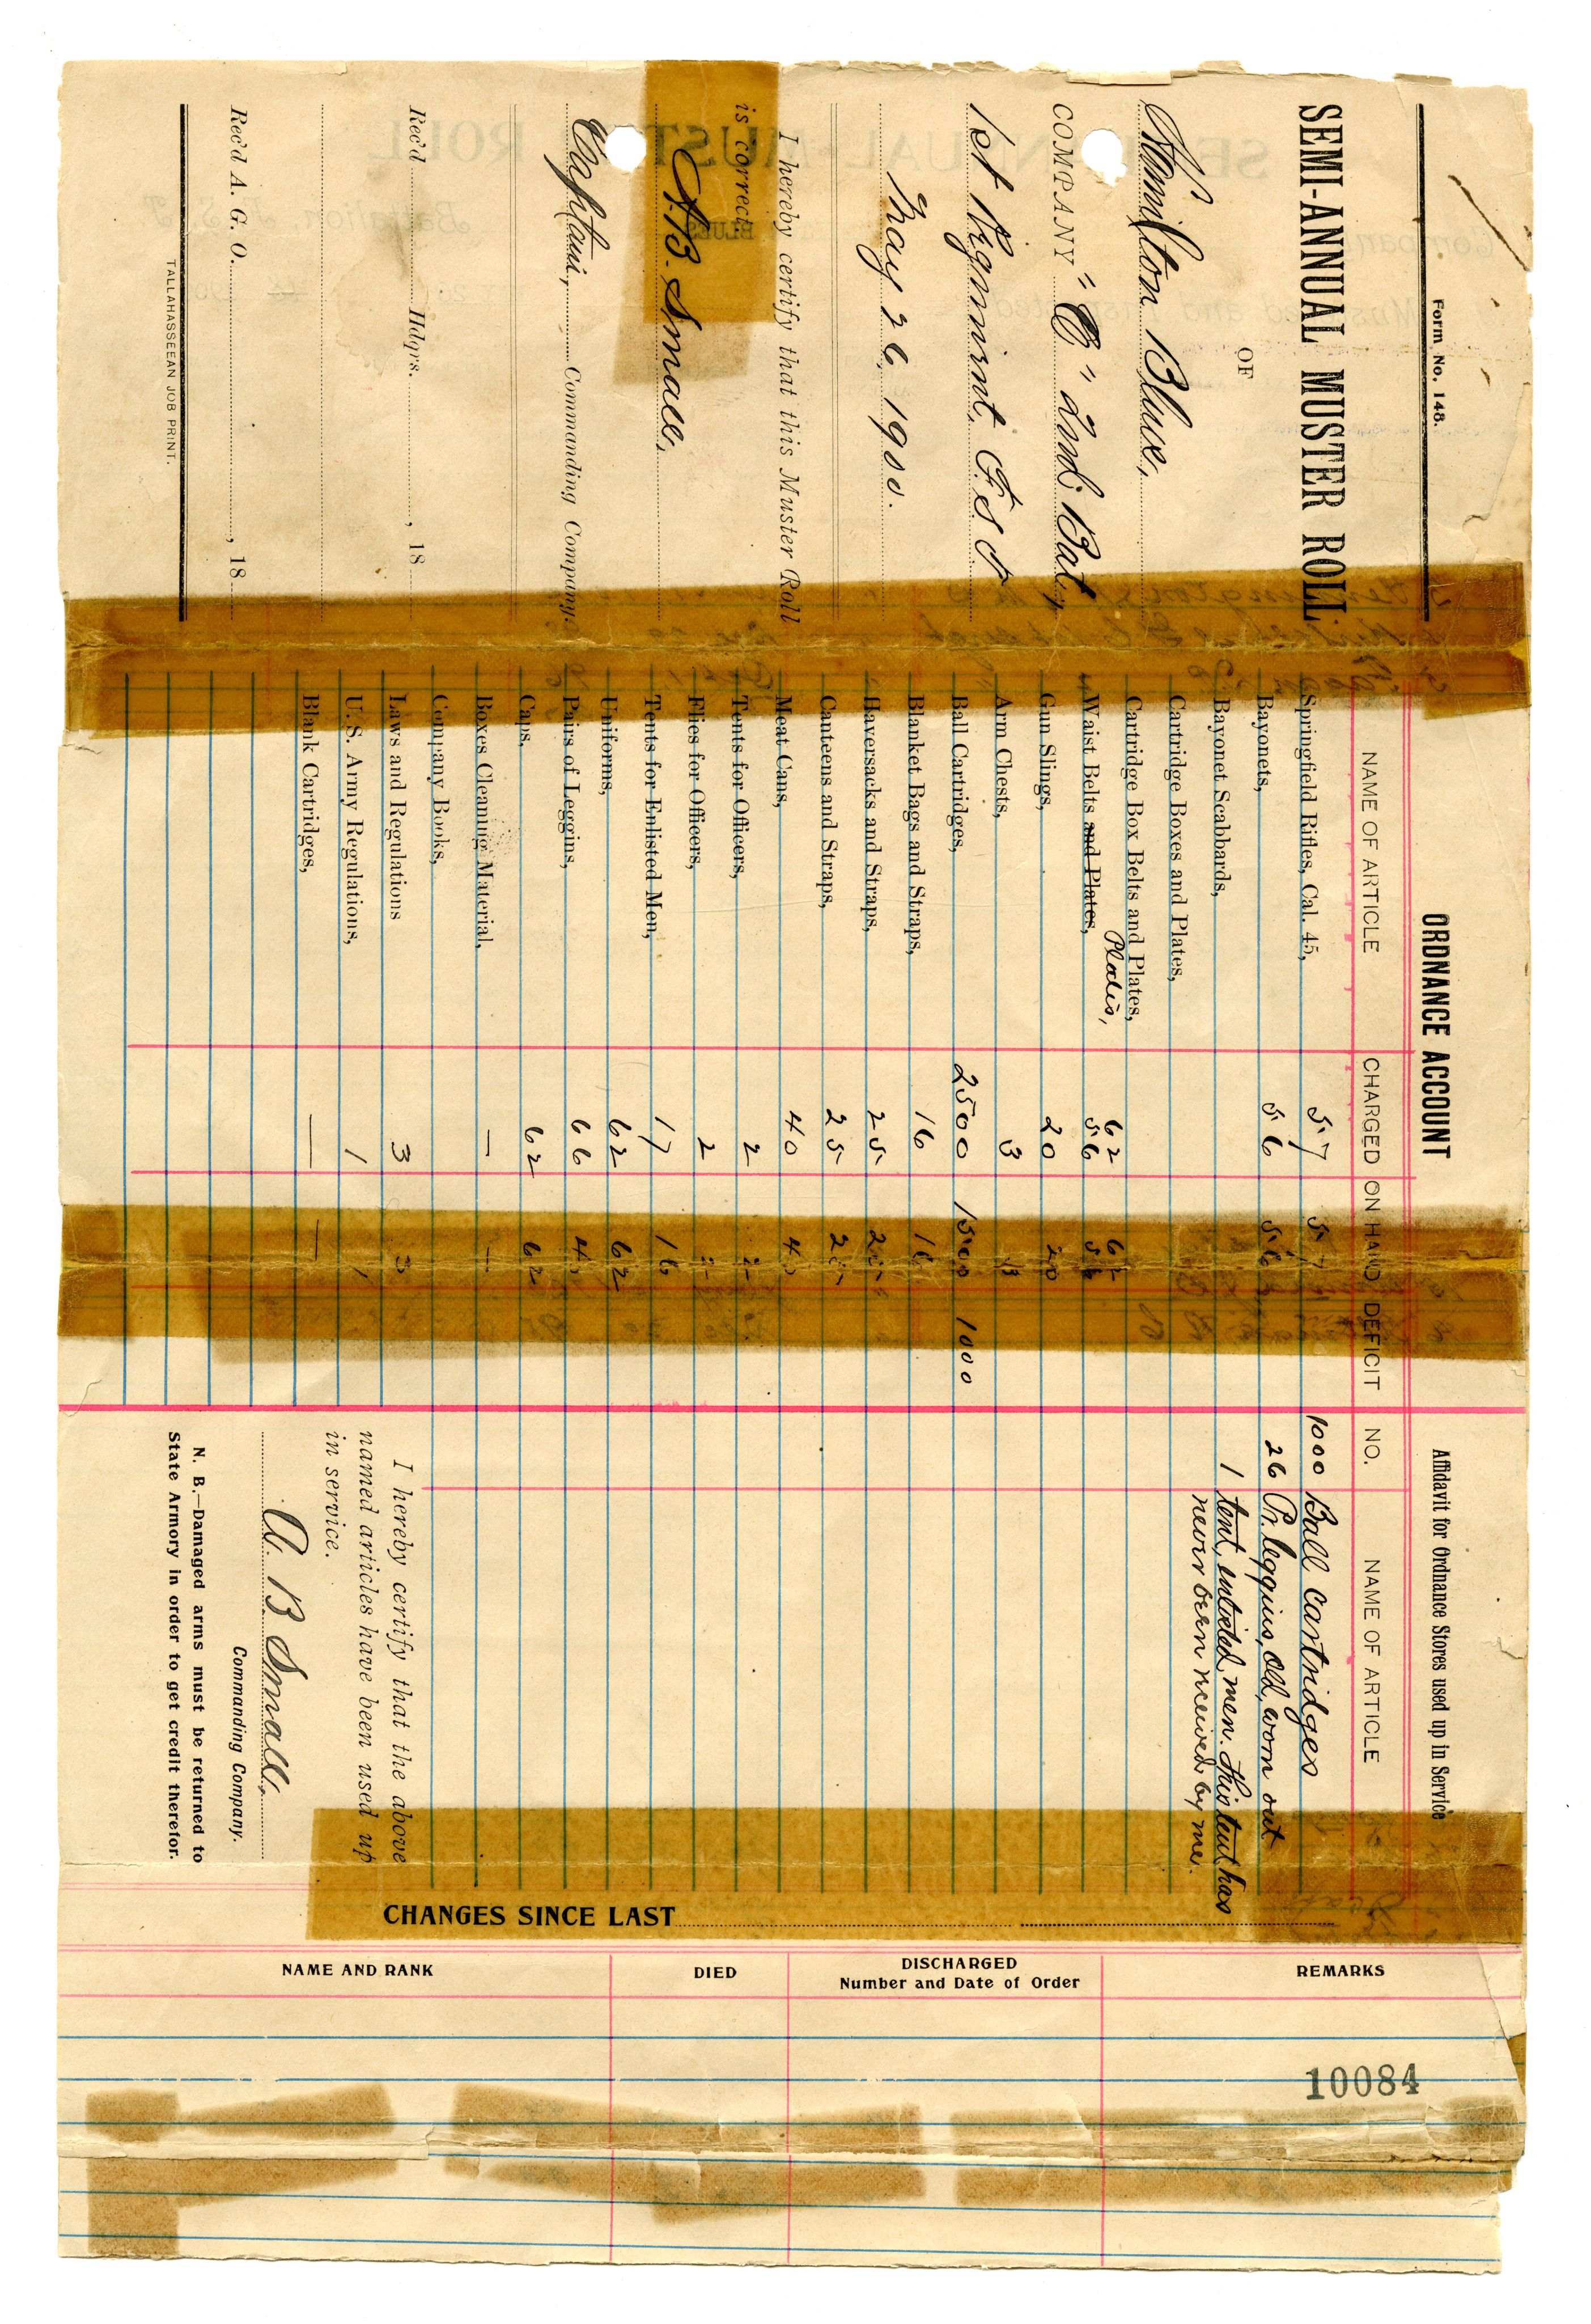 Form No. 148.
SEMI-ANNUAL MUSTER ROLL
OF
Hamilton Blues,
COMPANY "C" 2nd Bat,
1st Regiment, F. S. T
May 26, 1900.
I hereby certify that this Muster Roll
is correct.
A. B. Small,
Captain, Commanding Company.
Rec'd Hdqrs. , 18
Rec'd A. G. O. , 18
TALLAHASSEEAN JOB PRINT.
ORDNANCE ACCOUNT
NAME OF ARTICLE CHARGED ON HAND DEFICIT
Springfield Rifles, Cal. 45, 57 57
Bayonets, 56 56
Bayonet Scabbards,
Cartridge Boxes and Plates,
Cartridge Box Belts and Plates,
Plates, 62 62
Waist Belts and Plates, 56 56
Gun Slings, 20 20
Arm Chests, 3 3
Ball Cartridges, 2500 1500 1000
Blanket Bags and Straps, 16 16
Haversacks and Straps, 25 25
Canteens and Straps, 25 25
Meat Cans, 40 40
Tents for Officers, 2 2
Flies for Officers, 2 2
Tents for Enlisted Men, 17 16
Uniforms, 62 62
Pairs of Leggins, 66 40
Caps, 62 62
Boxes Cleaning Material, — —
Company Books,
Laws and Regulations 3 3
U. S. Army Regulations, 1 1
Blank Cartridges, — —
Affidavit for Ordnance Stores used up in Service
NO. NAME OF ARTICLE
1000 Ball Cartridges
26 Pr. leggins, old, worn out
1 tent, enlisted men. This tent has
never been received by me.
I hereby certify that the above
named articles have been used up
in service.
A. B Small,
Commanding Company.
N. B.—Damaged arms must be returned to
State Armory in order to get credit therefor.
CHANGES SINCE LAST
NAME AND RANK DIED DISCHARGED REMARKS
Number and Date of Order
10084